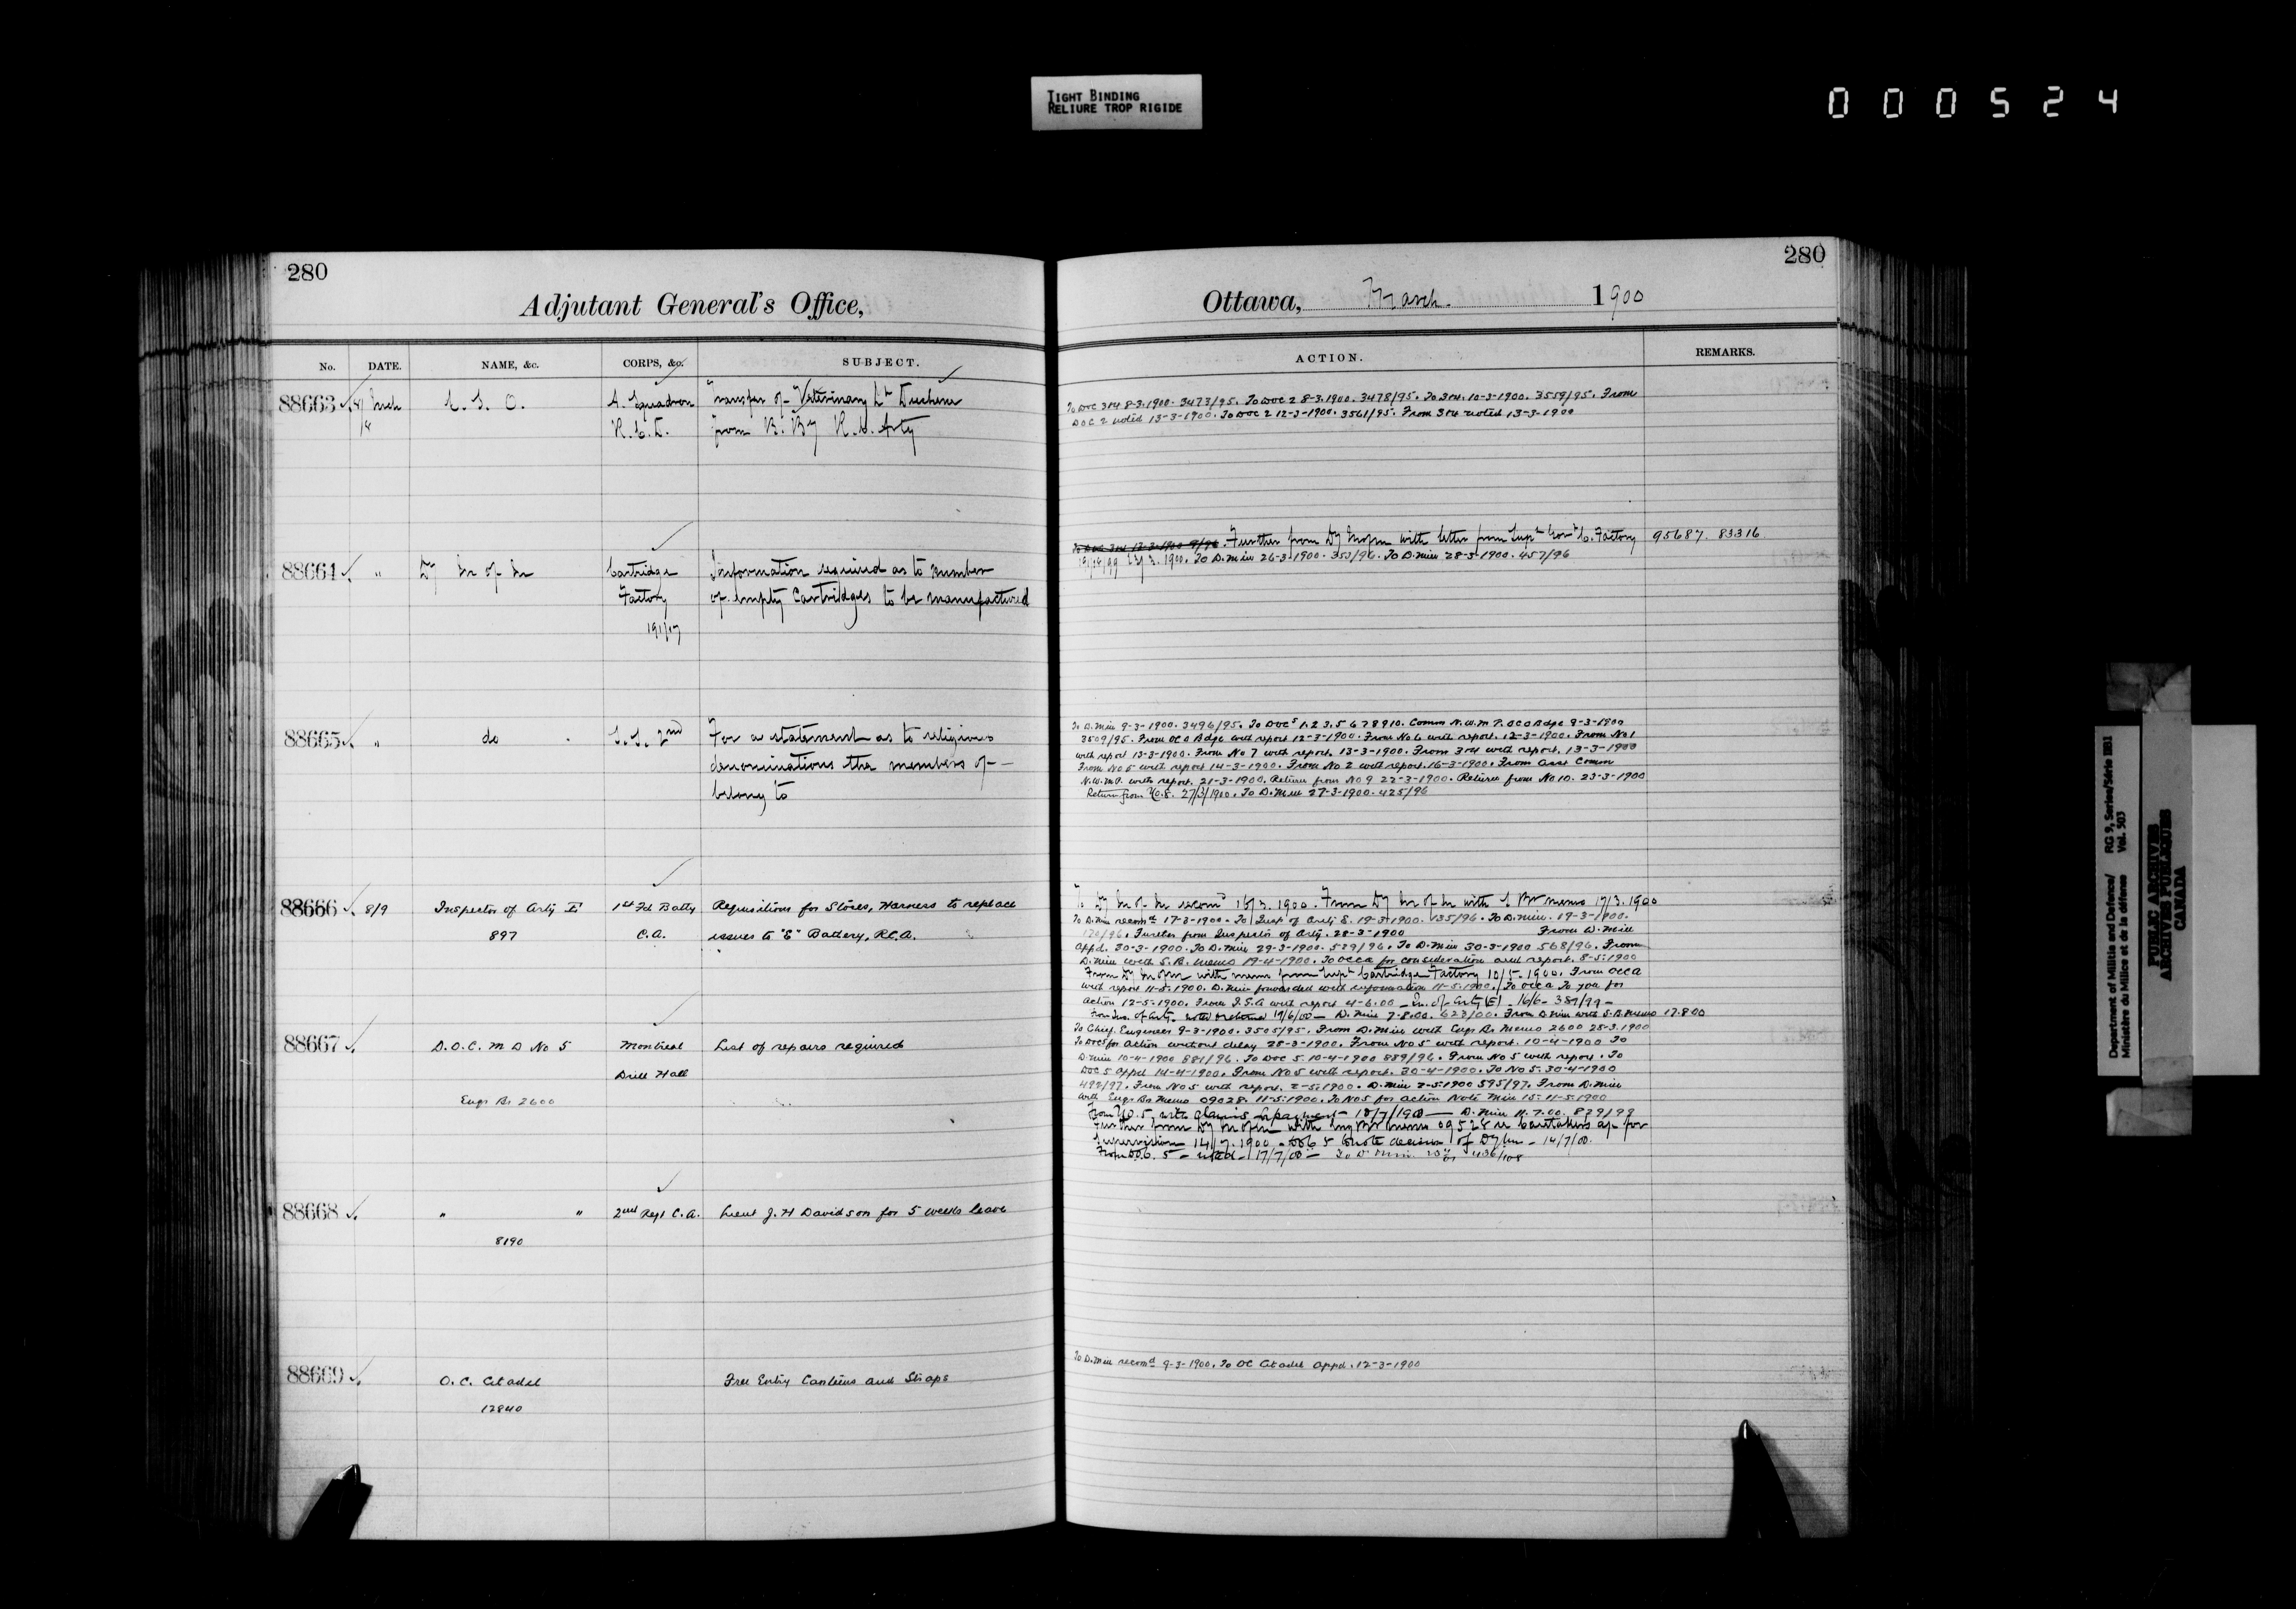 TIGHT BINDING
RELIURE TROP RIGIDE
000524
280
Adjutant General's Office,
No. DATE. NAME, &c. CORPS, &c. SUBJECT.
88663 C. S. O. A. Squadron Transfer of Veterinary Lt Duchene
R.C.D. from B. By R.C. Arty
88664 " Dy Mr of Mr Cartridge Information required as to number
Factory of empty Cartridges to be manufactured
191/17
88665 " do S.S. 2nd For a statement as to religious
denominations the members of
belong to
88666 8/9 Inspector of Arty E 1st Fd Batty Requisitions for Stores, Harness to replace
897 C.A. issues to "E" Battery, R.C.A.
88667 D.O.C. M D No 5 Montreal List of repairs required
Drill Hall
Engr Br 2600
88668 " " 2nd Regt C.A. Lieut J. H Davidson for 5 weeks leave
8190
88669 O.C. Citadel Free Entry Canteens and Straps
12840
280
Ottawa, March. 1900
ACTION. REMARKS.
To DOC 3 & 4 8-3-1900. 3473/95. To DOC 2 8-3-1900. 3478/95. To 3 & 4. 10-3-1900. 3559/95. From
DOC 2 noted 13-3-1900. To DOC 2 12-3-1900. 3561/95. From 3 & 4 noted 13-3-1900
Further from Dy with letter from Supt Govt C. Factory 95687 83316
1900. To D. Min 26-3-1900. 353/96. To D. Min 28-3-1900. 457/96
To D. Min 9-3-1900. 3496/95. To DOCs 1. 2 3. 5 6 7 8 9 10. Comm N.W.M.P. OCO Bdge 9-3-1900
3509/95. From OCO Bdge with report 12-3-1900. From No 6 with report. 12-3-1900. From No 1
with report 13-3-1900. From No 7 with report. 13-3-1900. From 3 & 4 with report. 13-3-1900
From No 5 with report 14-3-1900. From No 2 with report. 16-3-1900. From Asst Comm
N.W.M.P. with report. 21-3-1900. Return from No 9 22-3-1900. Return from No 10. 23-3-1900
Return from No. 8. 27/3/1900. To D. Min 27-3-1900. 425/96
To Dy Mr of Mr recomd 16/3. 1900. From Dy Mr of Mr with S Br memo 17/3. 1900
To D. Min recomd 17-3-1900. To Insp of Arty E. 19-3-1900. 135/96. To D. Min. 19-3-1900.
120/96. Further from Inspector of Arty. 28-3-1900 From D. Min
appd. 30-3-1900. To D. Min 29-3-1900. 529/96. To D. Min 30-3-1900 568/96. From
D. Min with S.B. memo 19-4-1900. To OCCA for consideration and report. 8-5-1900
From Dy with memo from Supt Cartridge Factory 10/5-1900. From OCCA
with report 11-5-1900. D. Min forwarded with information 11-5-1900. To OCCA To you for
action 12-5-1900. From I.G.A with report 4-6.00 - In. of Arty (E) - 16/6 - 389/99 -
From Ins. of Arty. noted & returned 19/6/00 - D. Min 7-8.00. 623/00. From D. Min with S.B. Memo 17.8.00
To Chief Engineer 9-3-1900. 3505/95. From D. Min with Engr Br Memo 2600 28-3-1900
To DOC 5 for action without delay 28-3-1900. From No 5 with report. 10-4-1900 To
D. Min 10-4-1900 881/96. To DOC 5. 10-4-1900 889/96. From No 5 with report. To
DOC 5 appd 14-4-1900. From No 5 with report. 30-4-1900. To No 5. 30-4-1900
492/97. From No 5 with report. 2-5-1900. D. Min 2-5-1900 595/97. From D. Min
with Engr Br Memo 09028. 11-5-1900. To No 5 for action Note Min 15. 11-5-1900
From No. 5, with 10/7/1900 - D. Min 11. 7. 00. 829/99
Further from Dy with Engr Br memo 09528 re Caretakers for
Supervision 14/7. 1900 - DOC 5 note decision of Dy Mr - 14/7/00.
From DOC. 5 - noted - 17/7/00 - To D. Min. 436/108
To D. Min recomd 9-3-1900. To OC Citadel appd. 12-3-1900
Department of Militia and Defence/ RG 9, Series/Série IIB1
Ministère du Milice et de la défense Vol. 503
PUBLIC ARCHIVES
ARCHIVES PUBLIQUES
CANADA